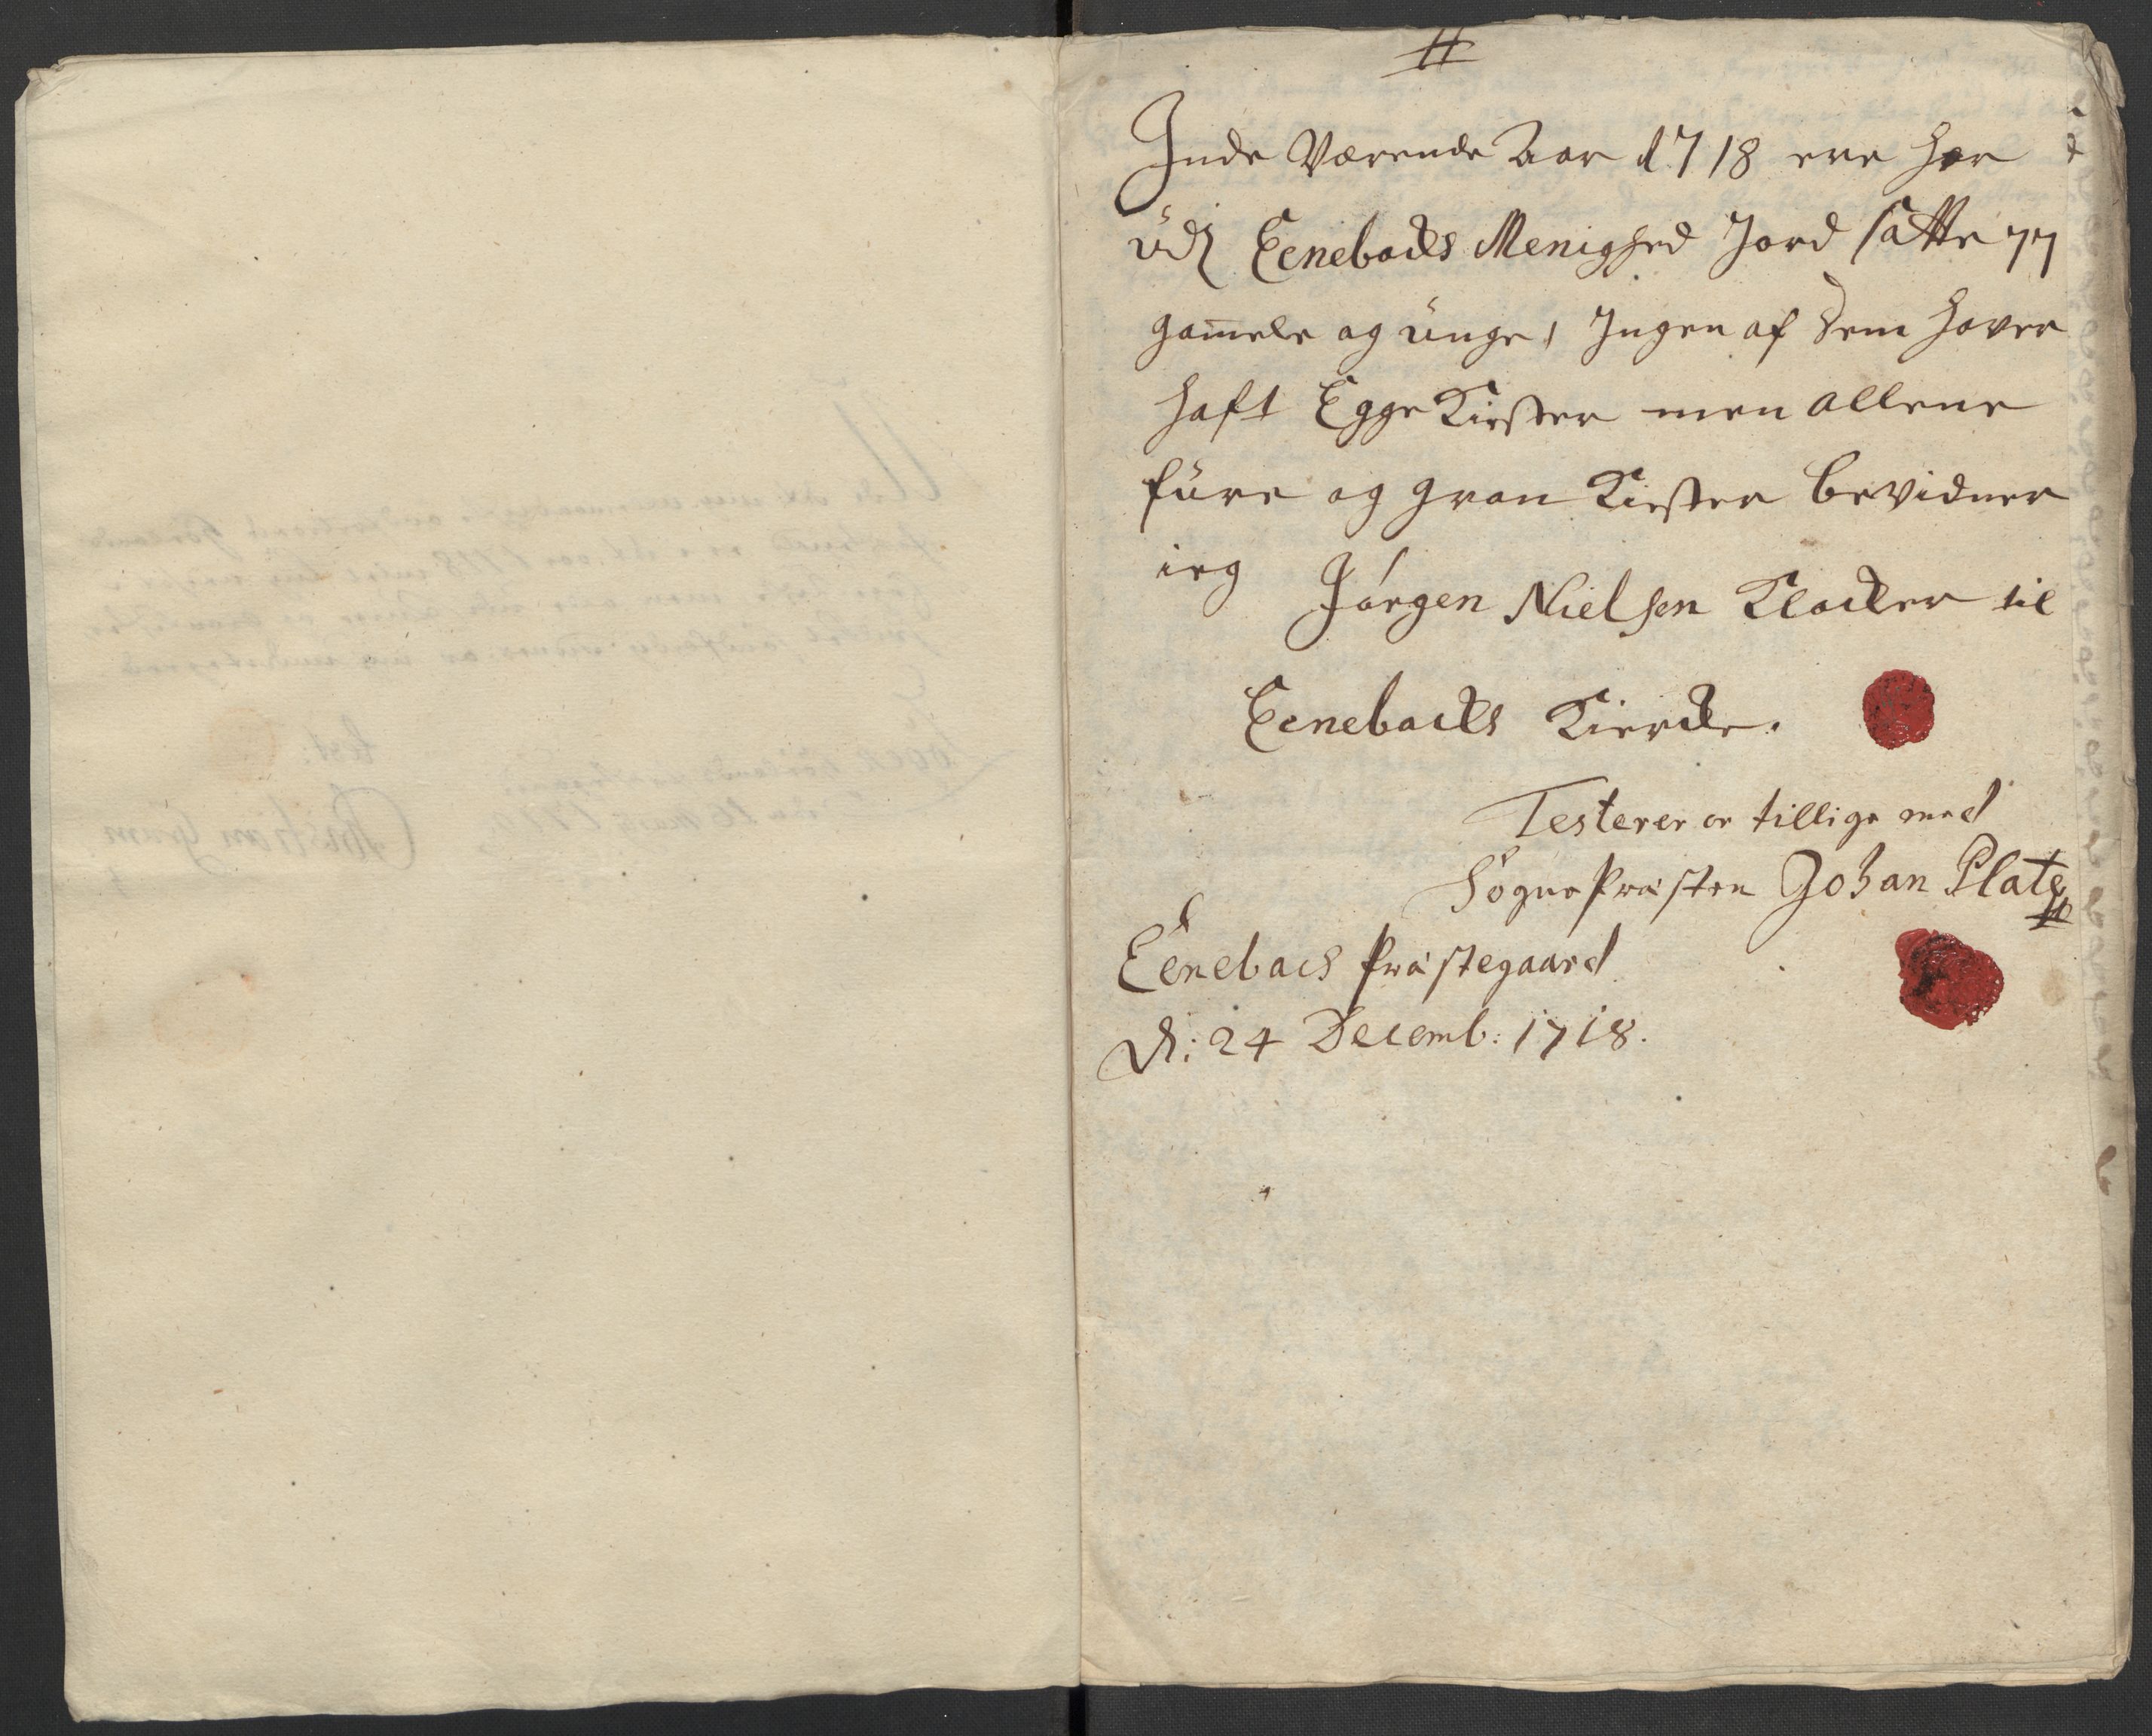 Inde Værende Aar 1718 ere her
udj Eenebacks Menighed Jord satte 77
gamele og unge, Ingen af dem haver
haft Egge Kiester men allene
fure og gran Kiester bevidner
ieg Jørgen Nielsen Klocker til
Eenebacks Kiercke.
Testerer tillige med
SognePræsten Johan Plate
Eenebachs Præstegaard
d: 24 Decemb: 1718.